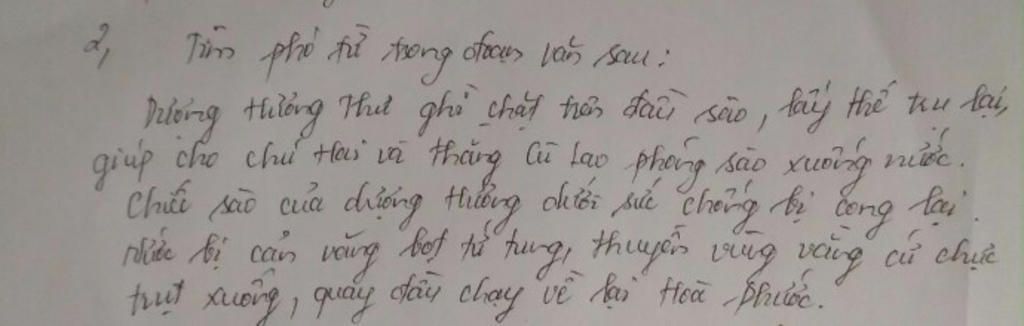 2, Tìm phó từ trong đoạn văn sau:
Dượng Hương Thư ghì chặt trên đầu sào, lấy thế trụ lại,
giúp cho chú Hai và thằng Cù Lao phóng sào xuống nước.
Chiếc sào của dượng Hương dưới sức chống bị cong lại.
Nước bị cản văng bọt tứ tung, thuyền vùng vằng cứ chực
trụt xuống, quay đầu chạy về lại Hoà Phước.